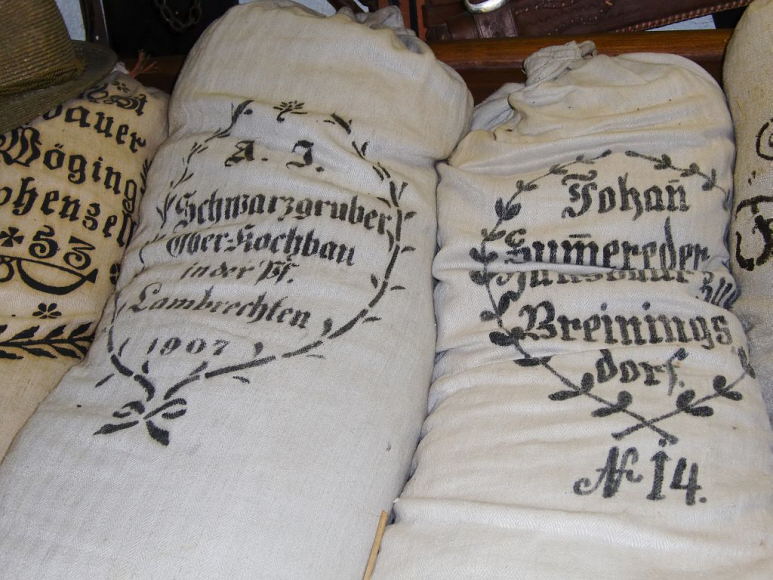 bauer
Wöging
ohenzell
53
A. J.
Schwarzgruber
Ober-Hochbau
in der Pf.
Lambrechten
1907
Johan̄
Sum̄ereder
Breinings
dorf.
N. 14.